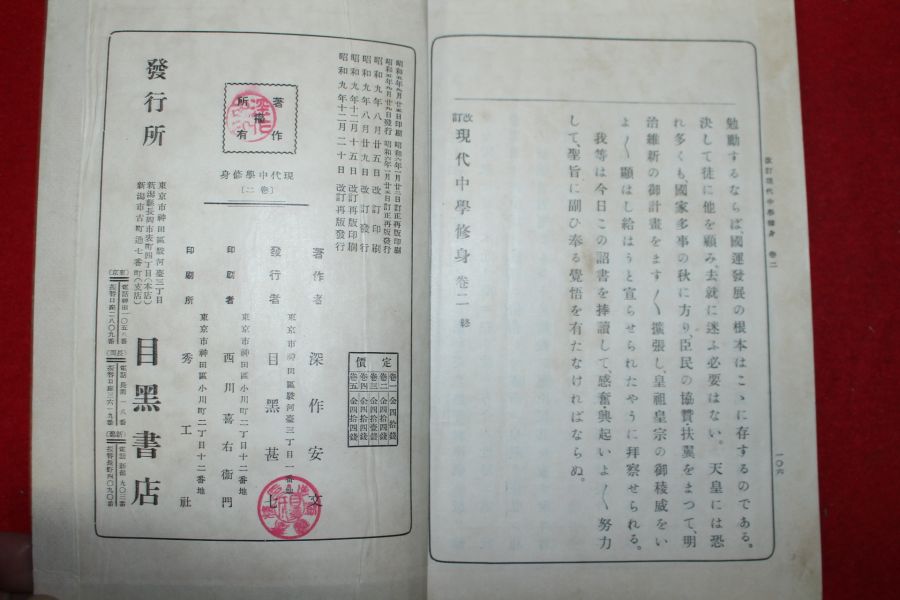 改訂現代中學修身　卷二
一〇六
勉勵するならば、國運發展の根本はこゝに存するのである。
決して徒に他を顧み、去就に迷ふ必要はない。天皇には恐
れ多くも、國家多事の秋に方り、臣民の協贊・扶翼をまつて、明
治維新の御計畫をます〳〵擴張し、皇祖皇宗の御稜威をい
よ〳〵顯はし給はうと宣らせられたやうに拜察せられる。
我等は今日この詔書を捧讀して、感奮興起いよ〳〵努力
して、聖旨に副ひ奉る覺悟を有たなければならぬ。
改訂 現代中學修身 卷二 終
昭和九年八月廿五日改訂印刷
昭和九年八月廿九日改訂發行
昭和九年十二月十五日改訂再版印刷
昭和九年十二月二十日改訂再版發行
著作權所有
現代中學修身
〔卷二〕
定價
卷一 金四拾錢
卷二 金四拾四錢
卷三 金四拾壹錢
卷四 金四拾四錢
卷五 金四拾四錢
著作者 深作安文
東京市神田區駿河臺三丁目一番地
發行者 目黑甚七
東京市神田區小川町二丁目十二番地
印刷者 西川喜右衞門
東京市神田區小川町二丁目十二番地
印刷所 秀工社
發行所
東京市神田區駿河臺三丁目
新潟縣長岡市表町四丁目(本店)
新潟市古町通七番町(支店)
目黑書店